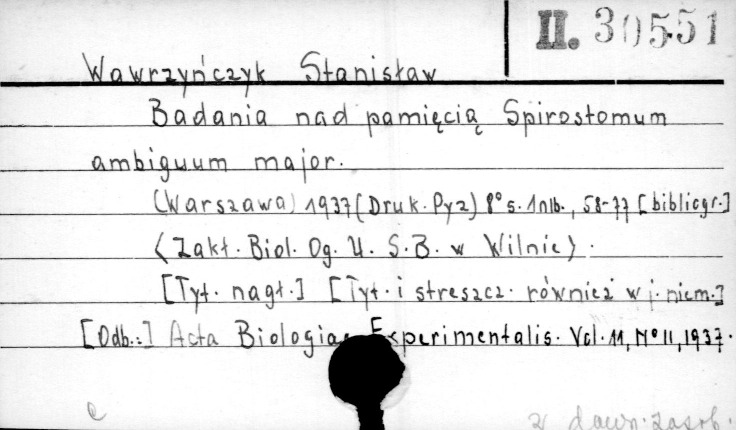 II. 30551
Wawrzyńczyk Stanisław
Badania nad pamięcią Spirostomum
ambiguum major.
(Warszawa) 1937 (Druk. Pyz) 8° s. 1 nlb., 58-77 [bibliogr.]
(Zakł. Biol. Og. U. S. B. w Wilnie).
[Tyt. nagł.] [Tyt. i streszcz. również w j. niem.]
[Odb.:] Acta Biologiae Experimentalis. Vol. 11, Nº 11, 1937.
e
z dawn. zasob.